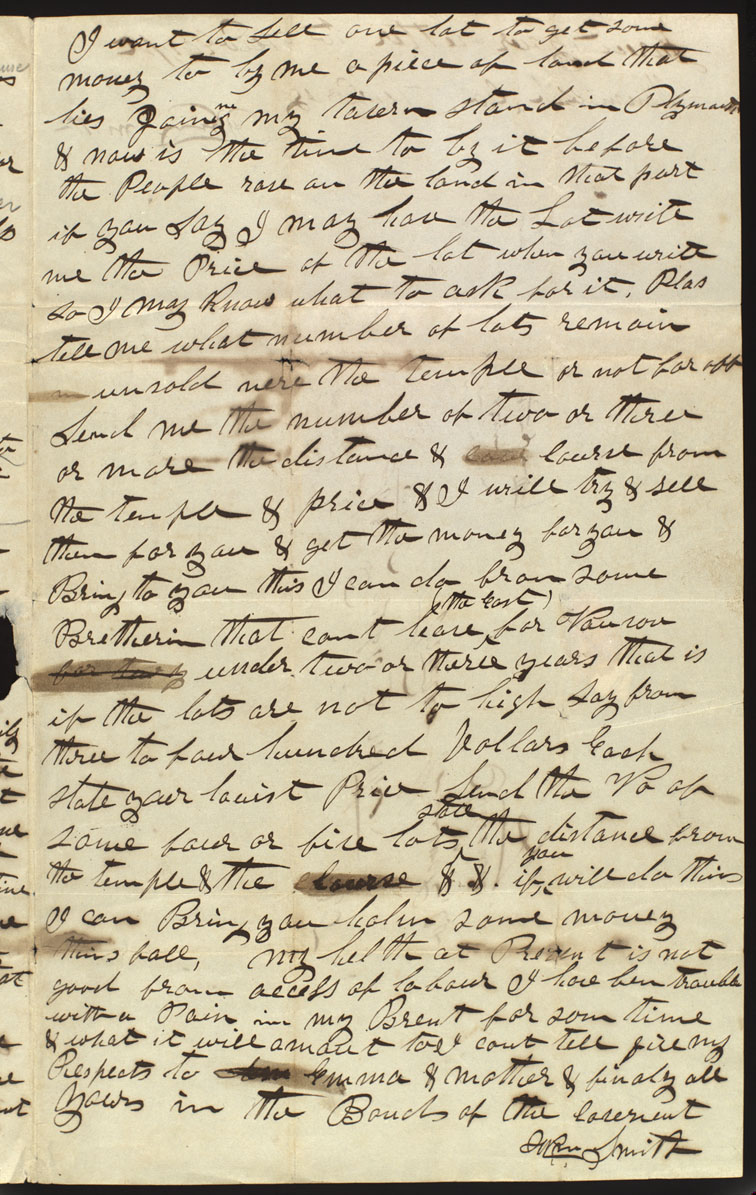 I want to sell one lot to get some
money to by me a piece of land that
lies Joineng my tavern stand in Plymouth
& now is the time to by it before
the People rase on the land in that part
if you say I may have the Lot write
me the Price of the lot when you write
so I may know what to ask for it, Plas
tell me what number of lots remain
unsold nere the temple or not far off
Send me the number of two or three
or more the distance & course from
the temple & price & I will try & sell
them for you & get the money for you &
Bring to you this I can do from some
Bretherin that cant leave (the East) for
under two or three years that is
if the lots are not to high say from
three to four hundred Dollars Each
state your louist Price Send the No of
some four or five lots state the distance from
the temple & the course & &. if you will do this
I can Bring you holm some money
this fall, my helth at Present is not
good from access of labour I have ben trouble
with a Pain in my Brest for som time
& what it will amout to I cont tell give my
Respects to Emma & mother & finaly all
Yours in the Bonds of the covenent
John Smith